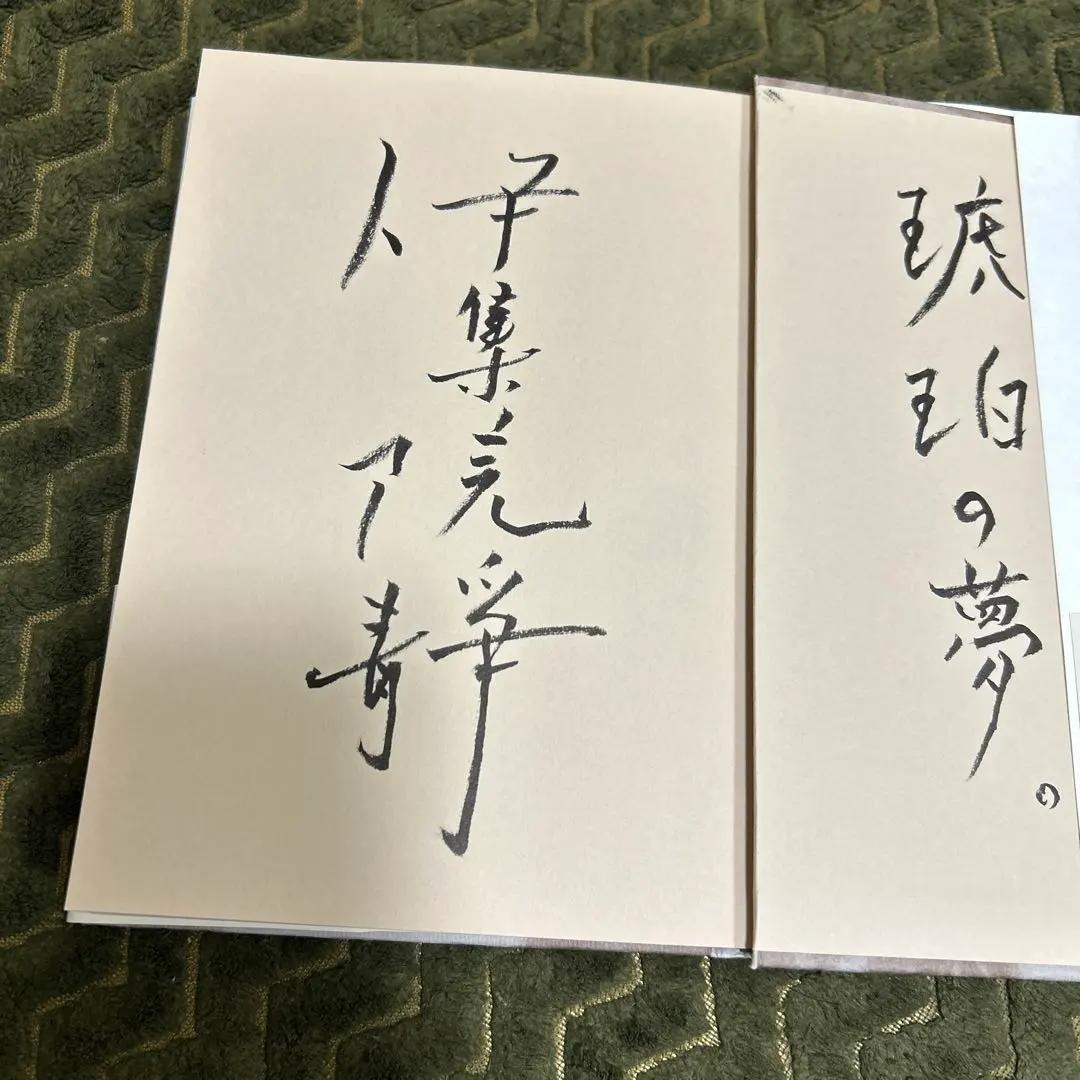 琥珀の夢。
伊集院静